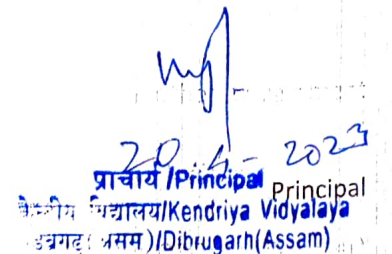 20 - 4 - 2023
प्राचार्य /Principal Principal
केन्द्रीय विद्यालय/Kendriya Vidyalaya
डिब्रुगढ़ (असम)/Dibrugarh(Assam)